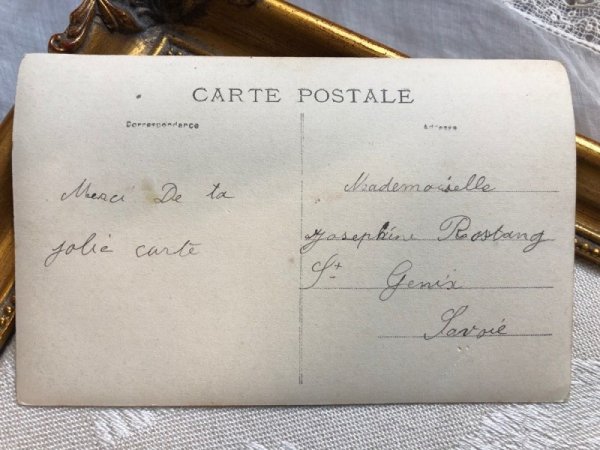 CARTE POSTALE
Correspondance
Adresse
Merci De ta
jolie carte
Mademoiselle
Josephine Rostang
St Genix
Savoie